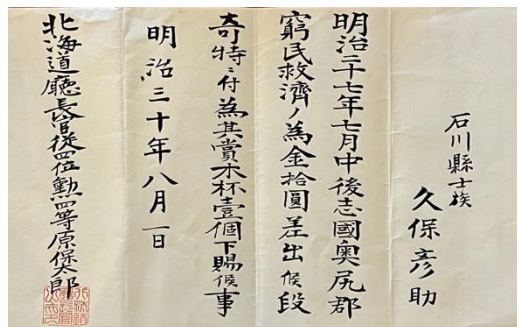 石川縣士族
久保彦助
明治二十七年七月中後志國奥尻郡
窮民救濟ノ為金拾圓差出候段
奇特ニ付為其賞木杯壹個下賜候事
明治三十年八月一日
北海道廳長官從四位勲四等原保太郎